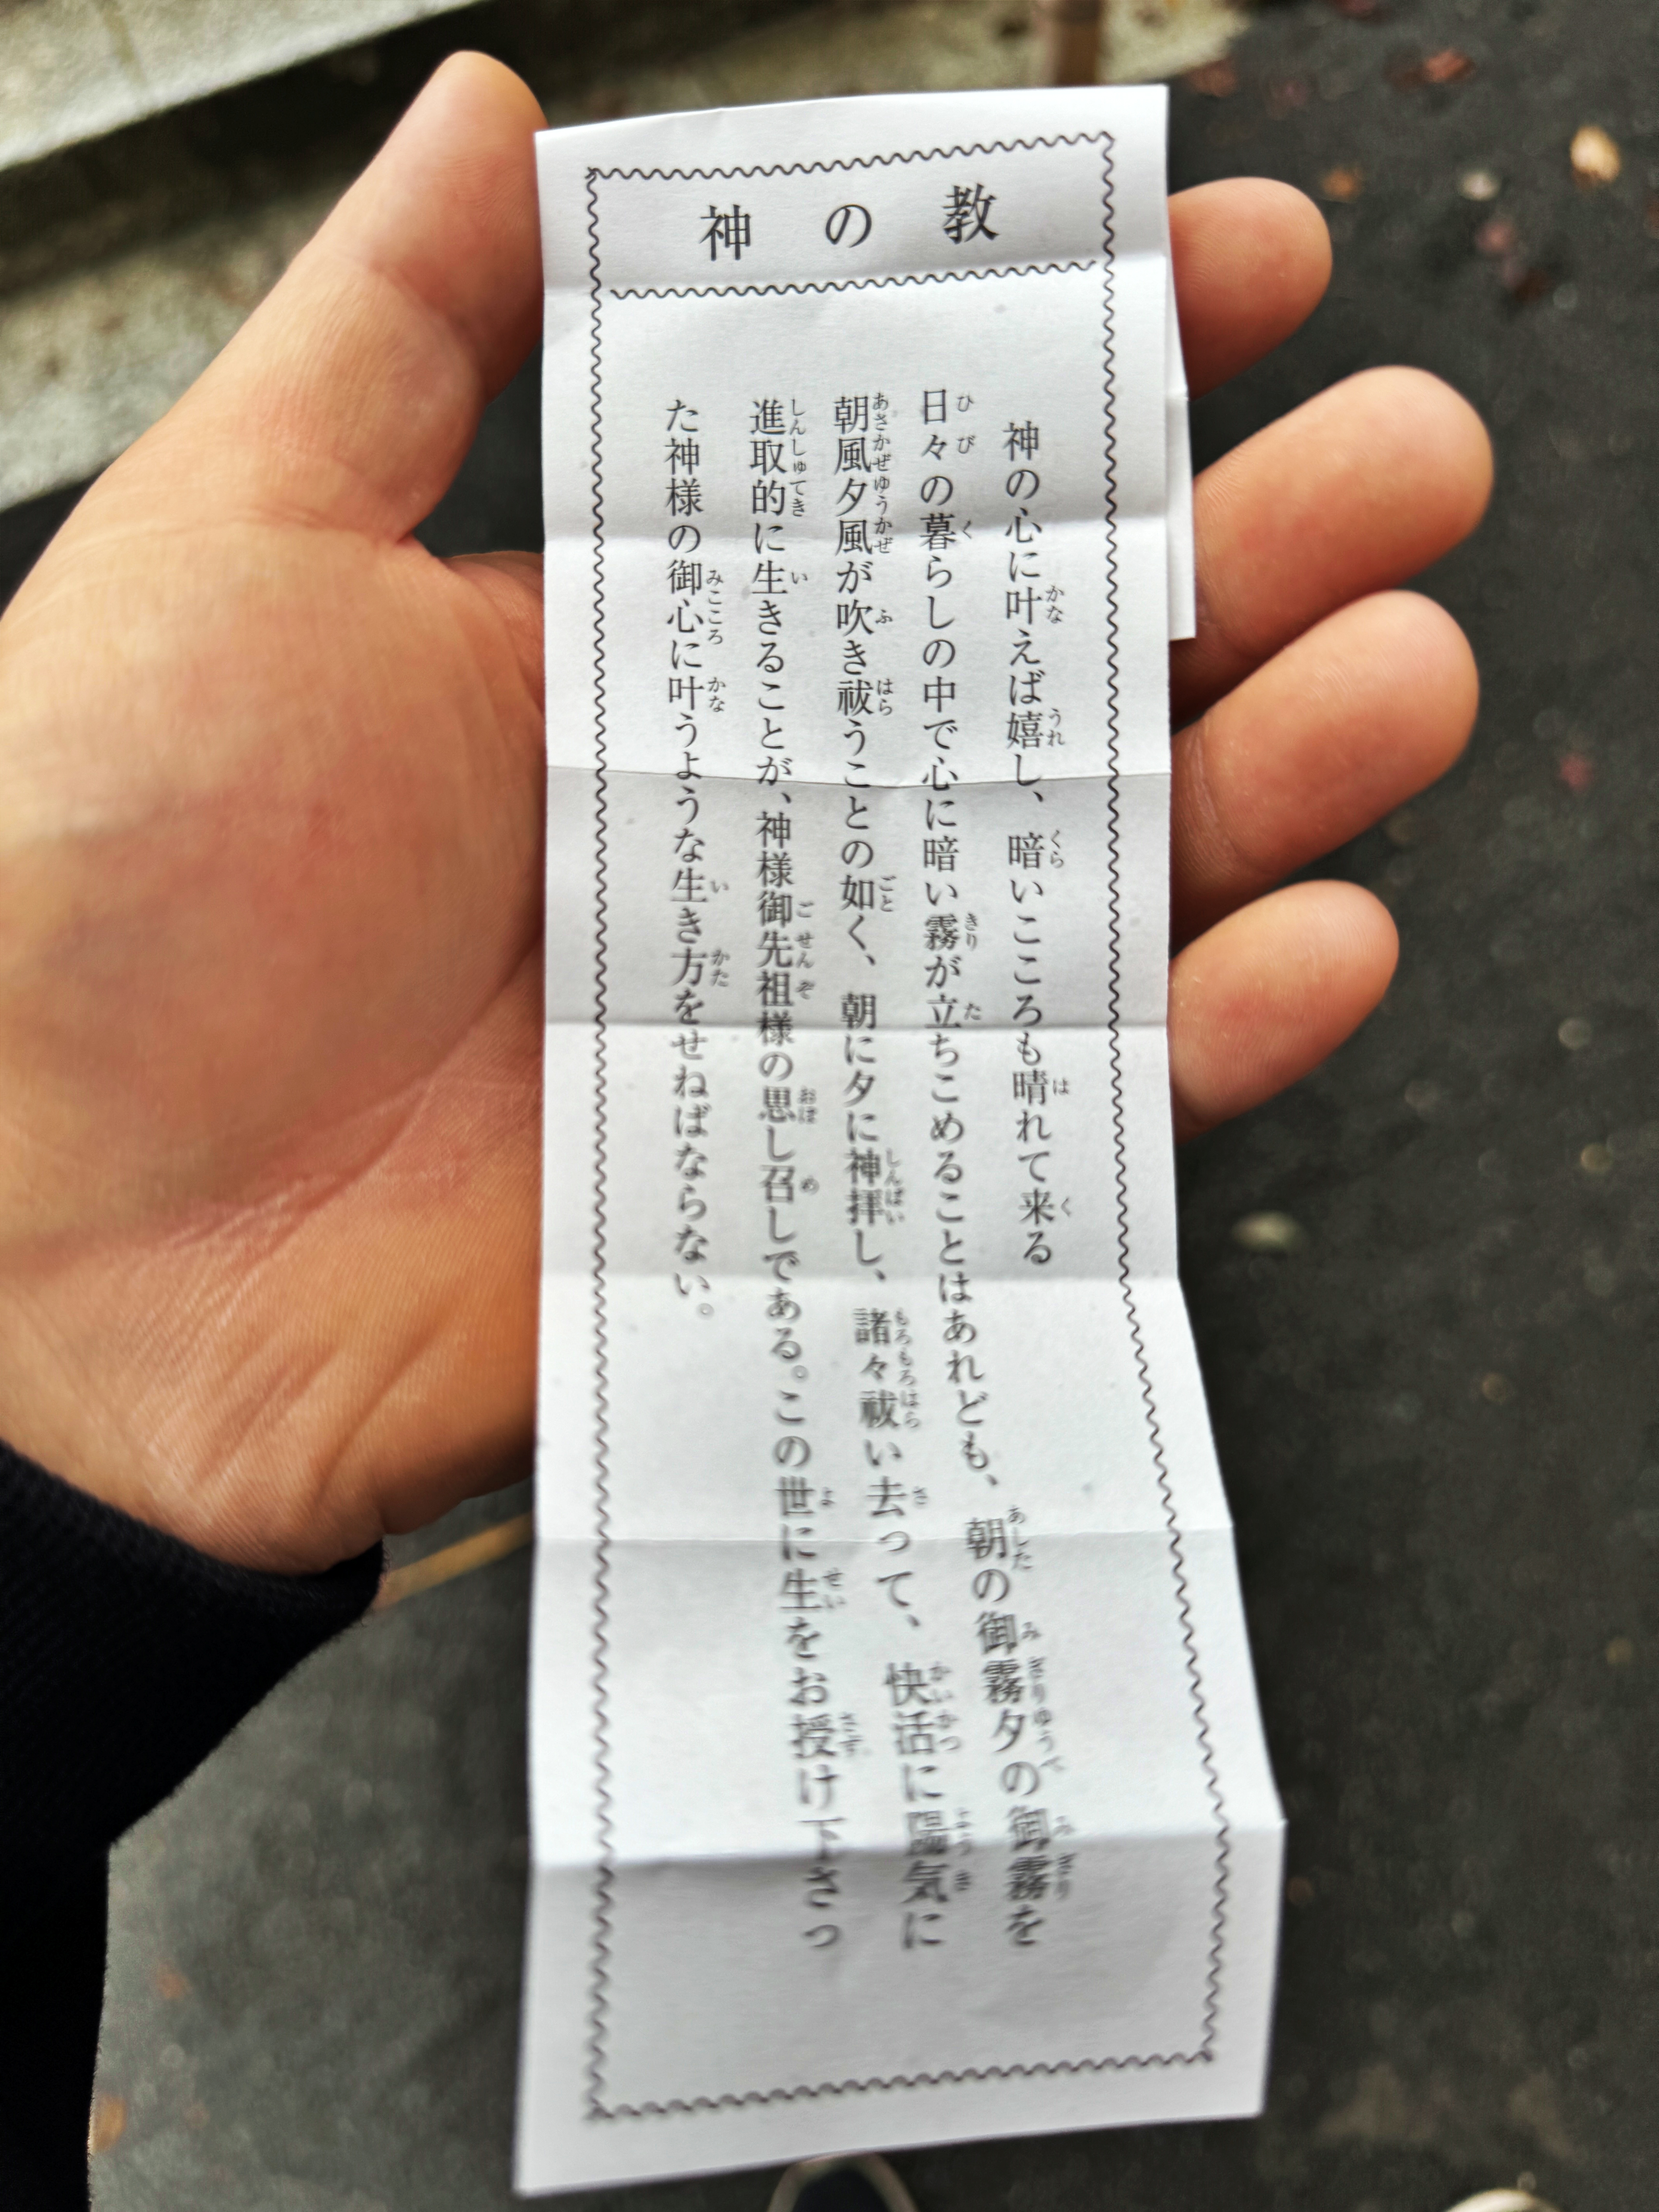 神の教
神の心に叶えば嬉し、暗いこころも晴れて来る
日々の暮らしの中で心に暗い霧が立ちこめることはあれども、朝の御霧夕の御霧を
朝風夕風が吹き祓うことの如く、朝に夕に神拝し、諸々祓い去って、快活に陽気に
進取的に生きることが、神様御先祖様の思し召しである。この世に生をお授け下さっ
た神様の御心に叶うような生き方をせねばならない。